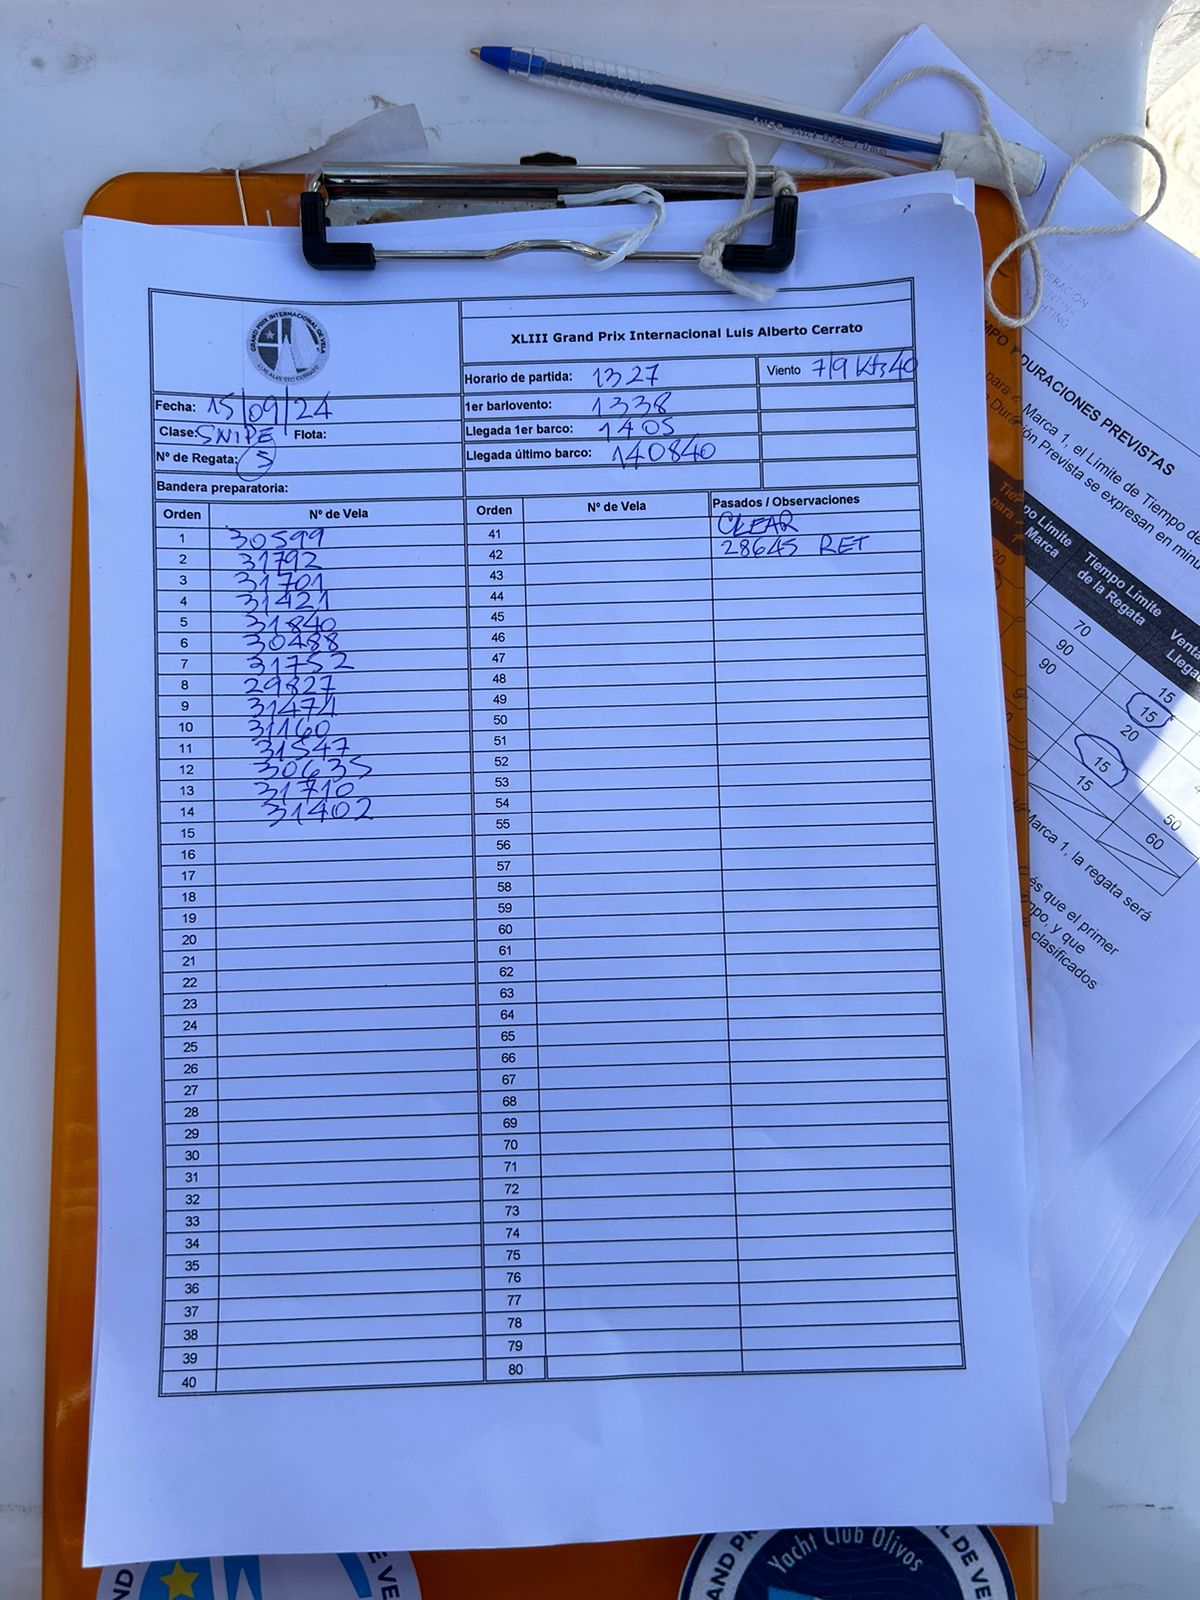 GRAND PRIX INTERNACIONAL DE VELA
LUIS ALBERTO CERRATO
XLIII Grand Prix Internacional Luis Alberto Cerrato
Horario de partida: 1327
Viento 7/9 Kts 40
Fecha: 15/09/24
1er barlovento: 1338
Clase: SNIPE Flota:
Llegada 1er barco: 1405
Nº de Regata: 5
Llegada último barco: 140840
Bandera preparatoria:
Orden Nº de Vela Orden Nº de Vela Pasados / Observaciones
1 30599 41 CLEAR
2 31792 42 28645 RET
3 31701 43
4 31421 44
5 31840 45
6 30488 46
7 31752 47
8 29827 48
9 31471 49
10 31160 50
11 31547 51
12 30635 52
13 31710 53
14 31402 54
15 55
16 56
17 57
18 58
19 59
20 60
21 61
22 62
23 63
24 64
25 65
26 66
27 67
28 68
29 69
30 70
31 71
32 72
33 73
34 74
35 75
36 76
37 77
38 78
39 79
40 80
DURACIONES PREVISTAS
Marca 1, el Límite de Tiempo de
Prevista se expresan en
Tiempo Límite
de la Regata
Marca
70
90
90
15
15
20
15
15
50
60
Marca 1, la regata será
que el primer
y que
clasificados
Yacht Club Olivos